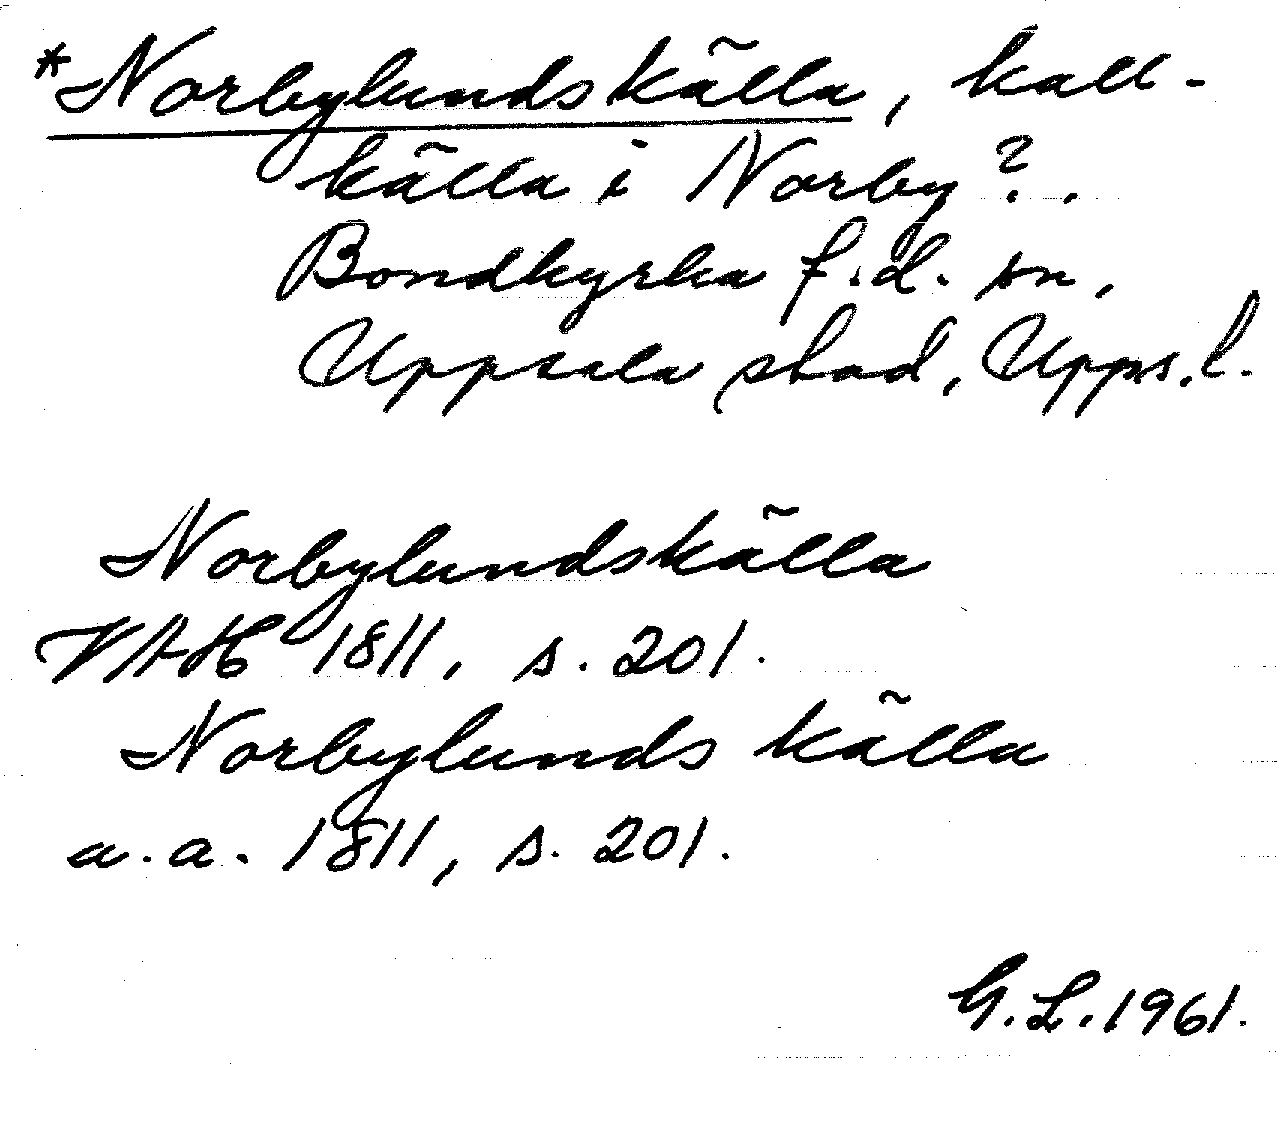 *Norbylundskälla, kall-
källa i Norby?.
Bondkyrka f.d. sn,
Uppsala stad, Upps. l.
Norbylundskälla
VAH 1811, s. 201.
Norbylunds källa
a.a. 1811, s. 201.
G.L. 1961.